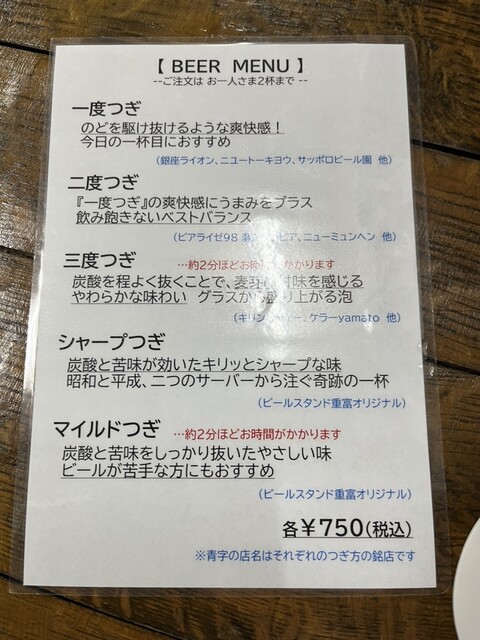 【 BEER MENU 】
--ご注文は お一人さま2杯まで --
一度つぎ
のどを駆け抜けるような爽快感！
今日の一杯目におすすめ
（銀座ライオン、ニユートーキヨウ、サッポロビール園 他）
二度つぎ
『一度つぎ』の爽快感にうまみをプラス
飲み飽きないベストバランス
（ピアライゼ98 ピア、ニューミュンヘン 他）
三度つぎ …約2分ほどお時間がかかります
炭酸を程よく抜くことで、麦芽の甘味を感じる
やわらかな味わい グラスから盛り上がる泡
（キリンシティー、ケラーyamato 他）
シャープつぎ
炭酸と苦味が効いたキリッとシャープな味
昭和と平成、二つのサーバーから注ぐ奇跡の一杯
（ビールスタンド重富オリジナル）
マイルドつぎ …約2分ほどお時間がかかります
炭酸と苦味をしっかり抜いたやさしい味
ビールが苦手な方にもおすすめ
（ビールスタンド重富オリジナル）
各￥750(税込)
※青字の店名はそれぞれのつぎ方の銘店です